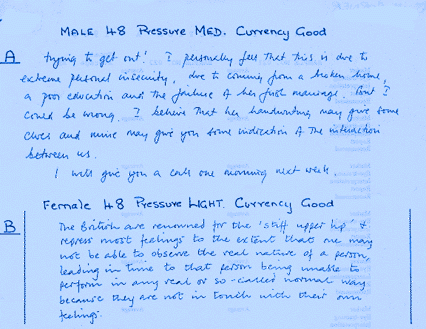 MALE 48 Pressure MED. Currency Good
A
trying to get out! I personally feel that this is due to
extreme personal insecurity, due to coming from a broken home,
a poor education and the failure of her first marriage. But I
could be wrong. I believe that her handwriting may give some
clues and mine may give you some indication of the interaction
between us.
I will give you a call one morning next week.
Female 48 Pressure LIGHT. Currency Good
B
The British are renowned for the 'stiff upper lip' &
repress most feelings to the extent that one may
not be able to observe the real nature of a person,
leading in time to that person being unable to
perform in any real or so-called normal way
because they are not in touch with their own
feelings.